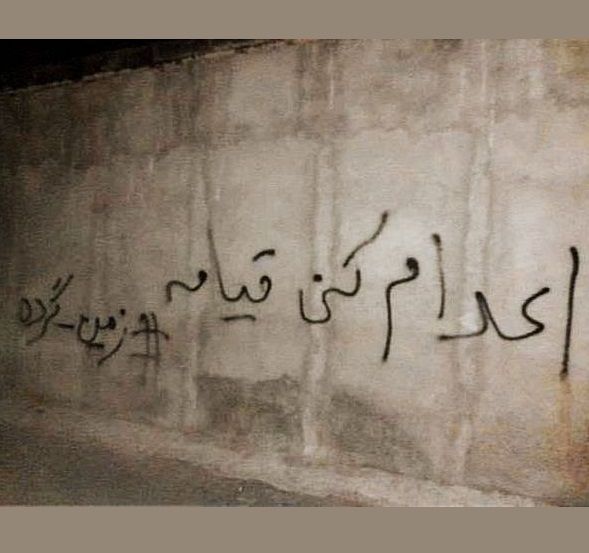 اعدام کنی قیامه
#زمین_گرده